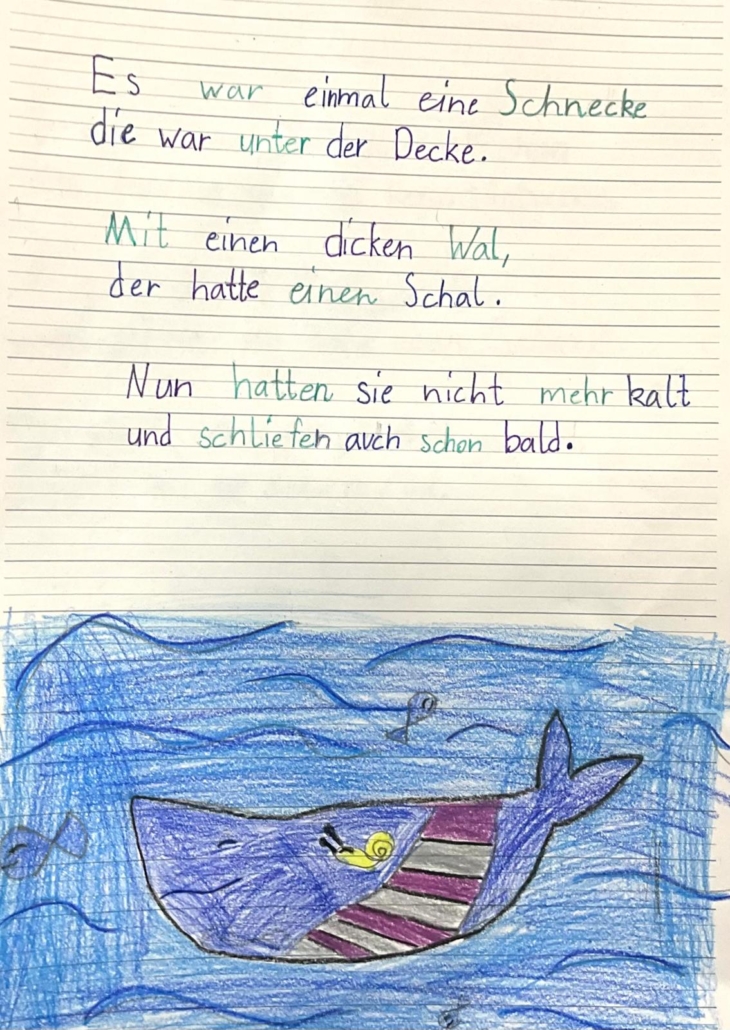 Es war einmal eine Schnecke
die war unter der Decke.
Mit einen dicken Wal,
der hatte einen Schal.
Nun hatten sie nicht mehr kalt
und schliefen auch schon bald.